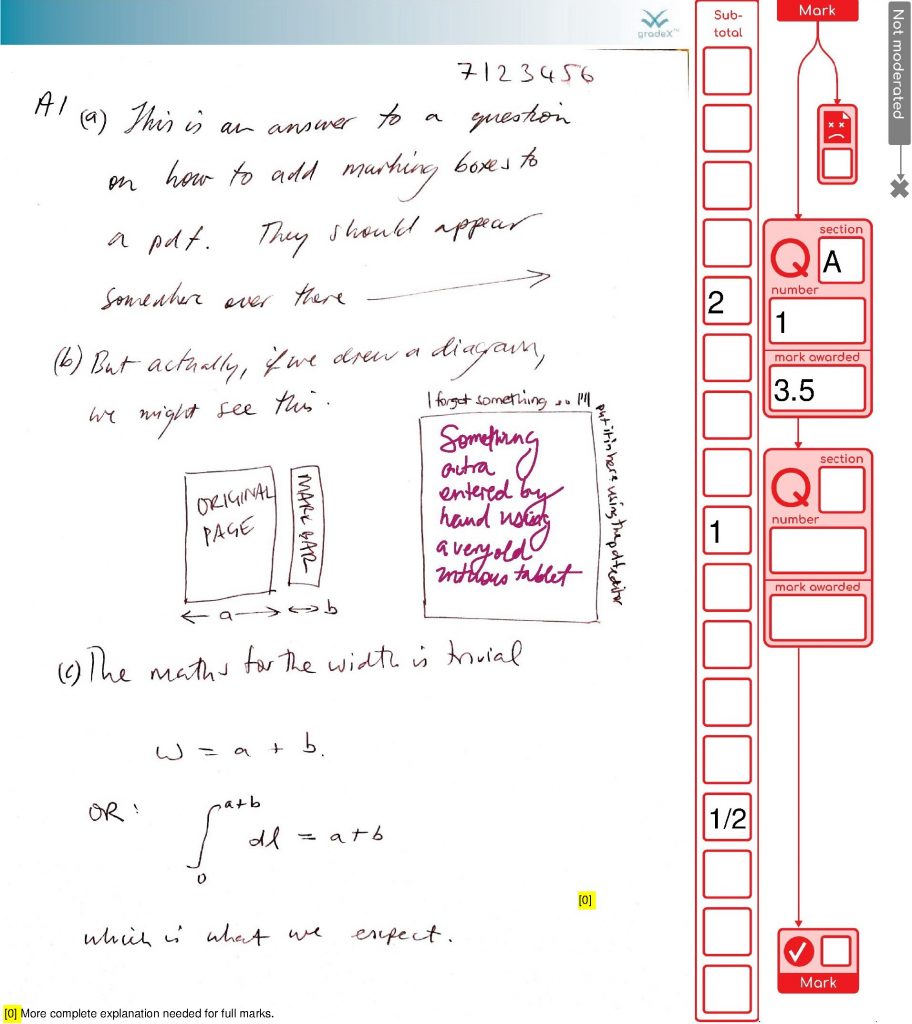 gradeX™
7123456
A1 (a) This is an answer to a question
on how to add marking boxes to
a pdf. They should appear
somewhere over there
(b) But actually, if we drew a diagram,
we might see this.
I forgot something so I'll
put it in here using the pdf editor
Something
extra
entered by
hand using
a very old
intuous tablet
ORIGINAL
PAGE
MARK BAR
a
b
(c) The maths for the width is trivial
w = a + b.
OR:
∫₀ᵃ⁺ᵇ dl = a+b
which is what we expect.
[0]
[0] More complete explanation needed for full marks.
Sub-
total
2
1
1/2
Mark
Not moderated
section
Q A
number
1
mark awarded
3.5
section
Q
number
mark awarded
Mark